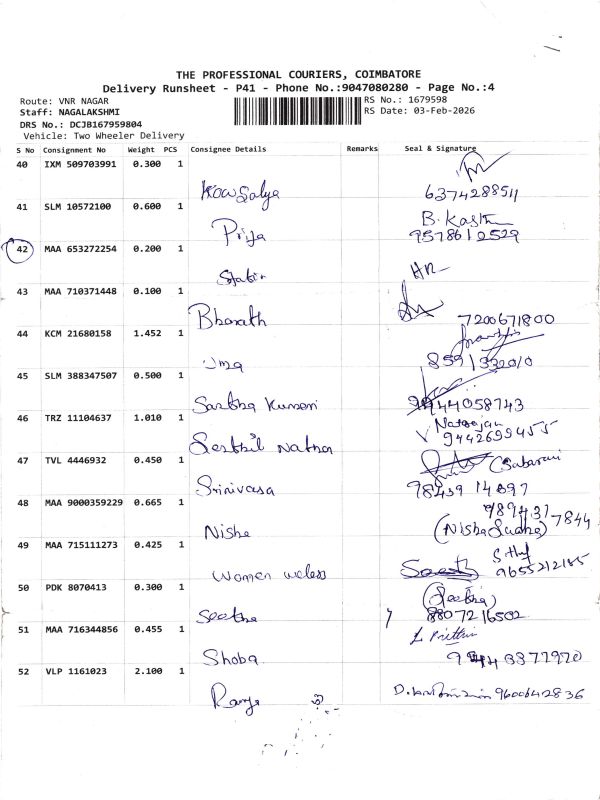 THE PROFESSIONAL COURIERS, COIMBATORE
Delivery Runsheet - P41 - Phone No.:9047080280 - Page No.:4
Route: VNR NAGAR
RS No.: 1679598
Staff: NAGALAKSHMI
RS Date: 03-Feb-2026
DRS No.: DCJB167959804
Vehicle: Two Wheeler Delivery
S No Consignment No Weight PCS Consignee Details Remarks Seal & Signature
40 IXM 509703991 0.300 1
Kowsalya 6374288511
41 SLM 10572100 0.600 1
Priya 9578612529
42 MAA 653272254 0.200 1
43 MAA 710371448 0.100 1
Bharath 7200671800
44 KCM 21680158 1.452 1
Uma 8591332010
45 SLM 388347507 0.500 1
9944058743
46 TRZ 11104637 1.010 1
Natarajan
9442699455
47 TVL 4446932 0.450 1
Srinivasa
48 MAA 9000359229 0.665 1
Nisha
49 MAA 715111273 0.425 1
Women 9655212185
50 PDK 8070413 0.300 1
Seetha 8807216502
51 MAA 716344856 0.455 1
Shoba
52 VLP 1161023 2.100 1
Ramya 9600642836